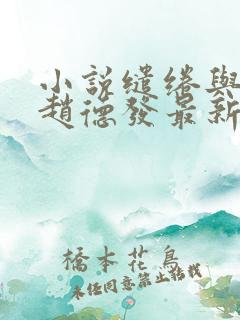 小說繾綣與
趙德發最新
橋本花鳥
未経同意禁止转载